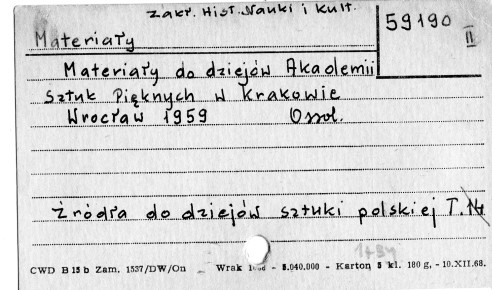 Zakł. Hist. Nauki i Kult.
59190
II
Materiały
Materiały do dziejów Akademii
Sztuk Pięknych w Krakowie
Wrocław 1959 Ossol.
Źródła do dziejów sztuki polskiej T.14
CWD B 15 b Zam. 1537/DW/On Wrak - 5.040.000 - Karton 5 kl. 180 g. - 10.XII.68.